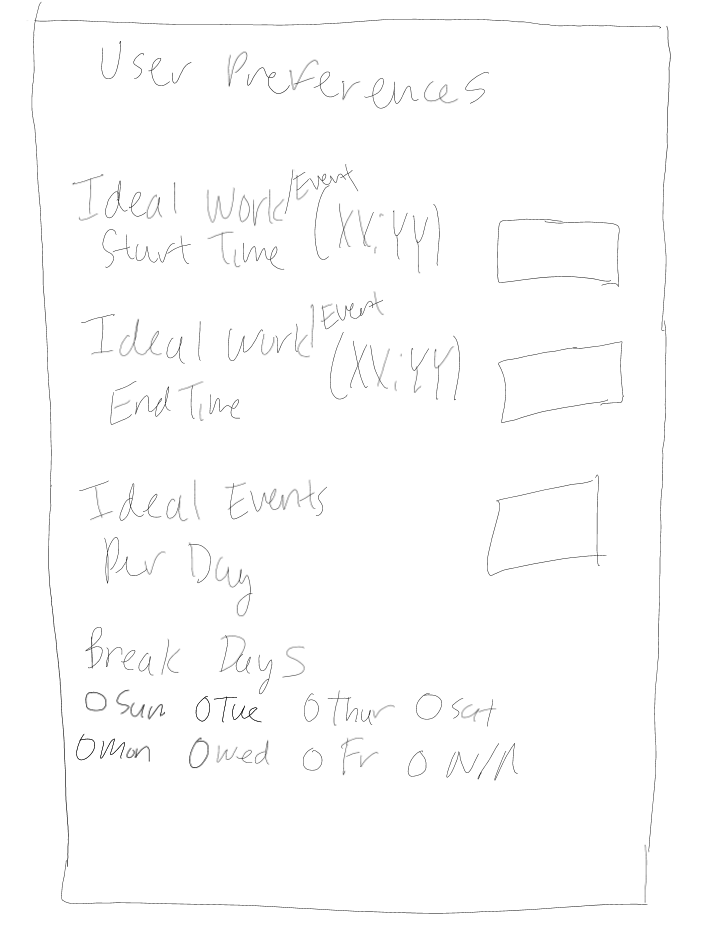 User Preferences
Ideal Work/Event
Start Time (XX:YY)
Ideal Work/Event
End Time (XX:YY)
Ideal Events
Per Day
Break Days
O Sun O Tue O Thur O Sat
O Mon O Wed O Fr O N/A